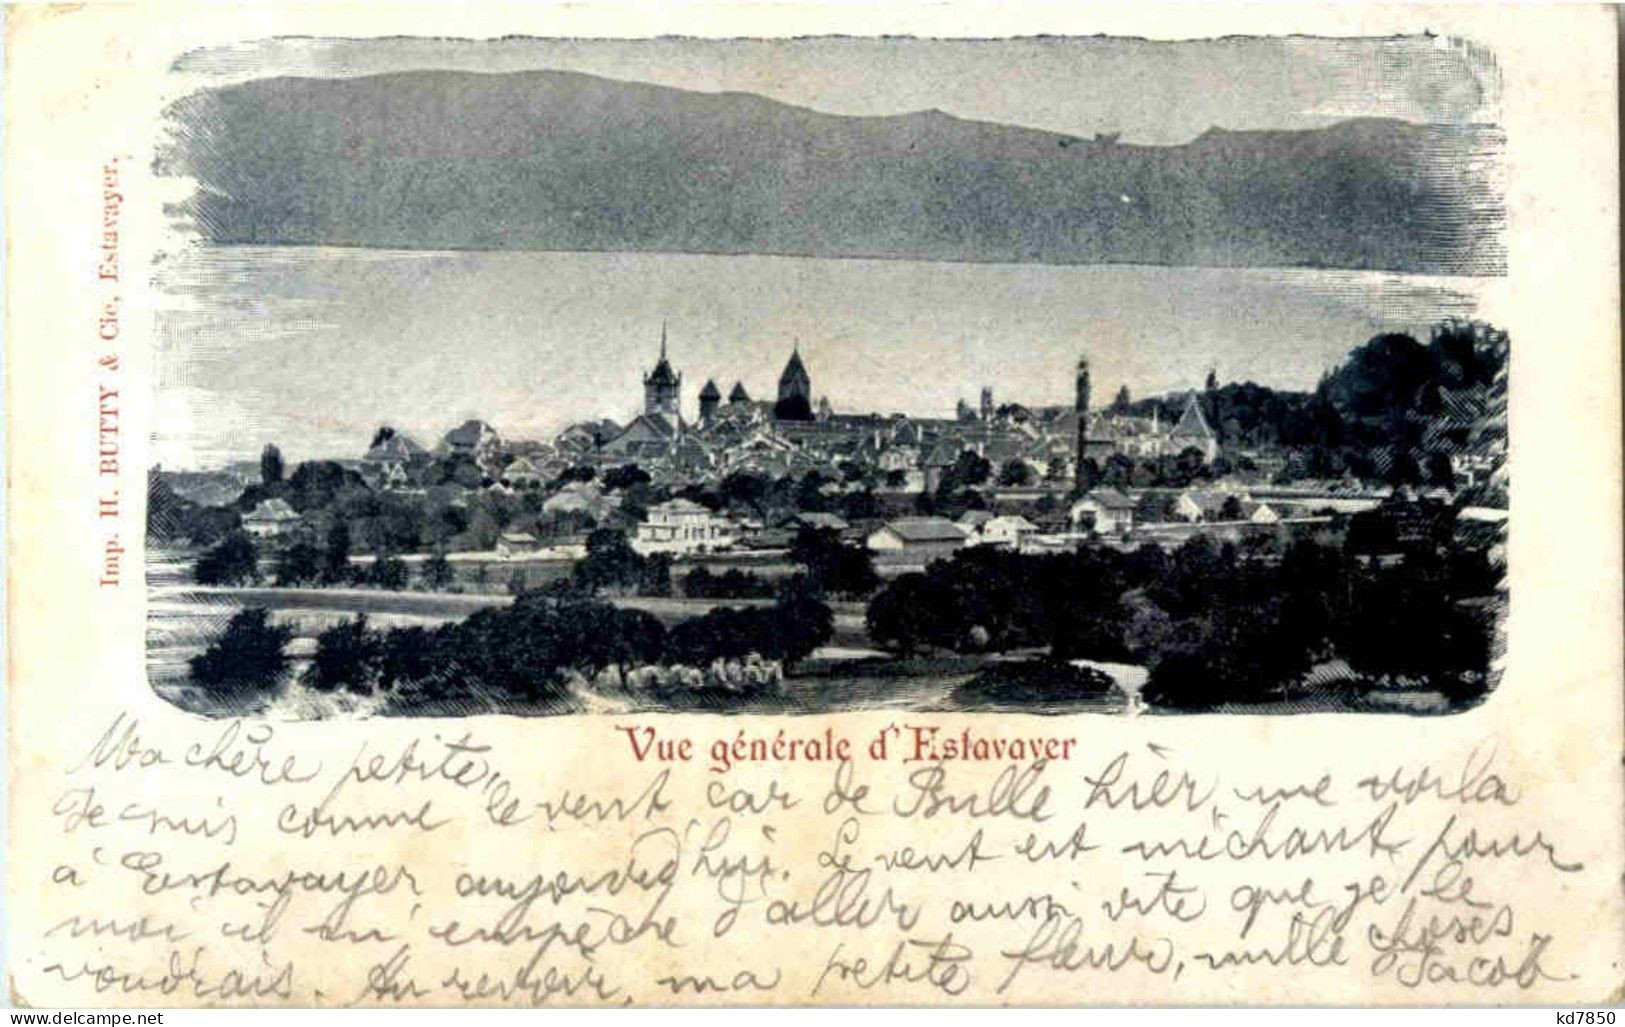 Imp. H. BUTTY & Cie, Estavayer.
Vue générale d'Estavayer
Ma chère petite,
Je suis comme le vent, car de Bulle hièr, me voila
à Estavayer aujourd'hui. Le vent est méchant pour
moi il m'empèche d'aller aussi vite que je le
voudrais. Au revoir, ma petite fleur, mille choses.
Jacob.
kd7850